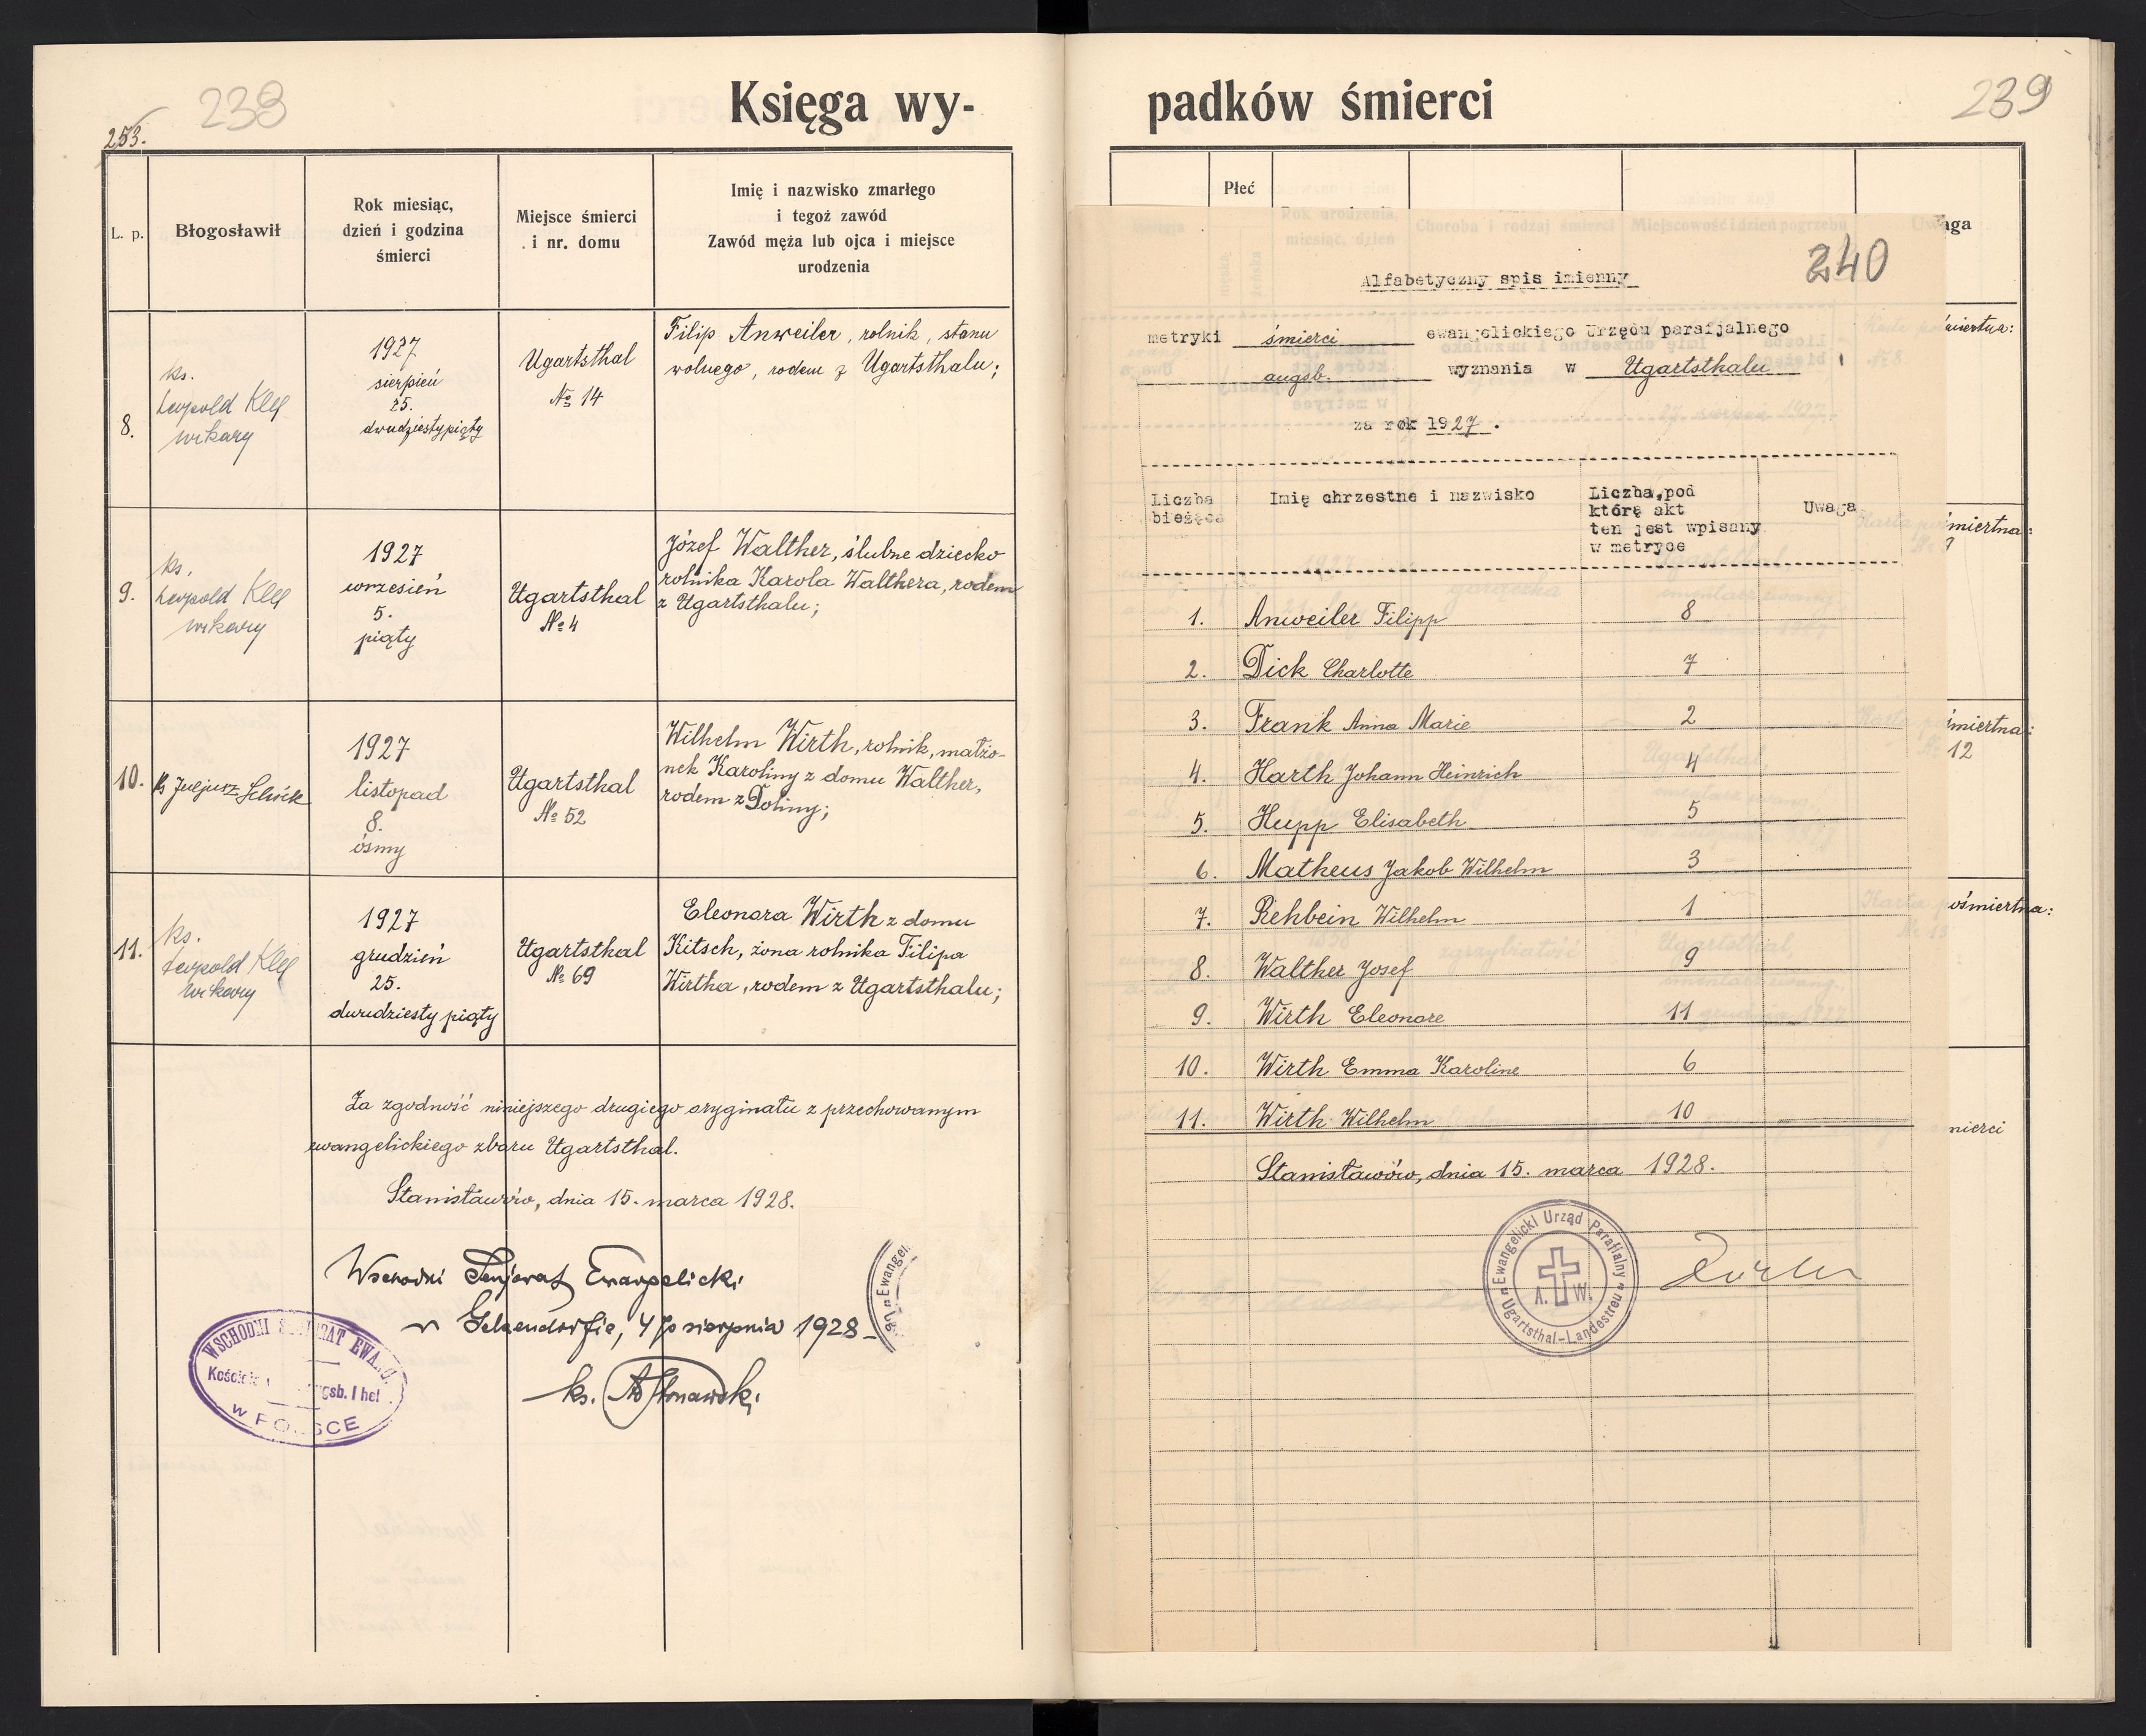 238
253.
Księga wy-
L. p.
Błogosławił
Rok miesiąc,
dzień i godzina
śmierci
Miejsce śmierci
i nr. domu
Imię i nazwisko zmarłego
i tegoż zawód
Zawód męża lub ojca i miejsce
urodzenia
8.
ks.
Leopold Klee
wikary
1927
sierpień
25.
dwudziestypiąty
Ugartsthal
№ 14
Filip Anweiler, rolnik, stanu
wolnego, rodem z Ugartsthalu;
9.
ks.
Leopold Klee
wikary
1927
wrzesień
5.
piąty
Ugartsthal
№ 4
Józef Walther, ślubne dziecko
rolnika Karola Walthera, rodem
z Ugartsthalu;
10.
ks Juljusz
1927
listopad
8.
ósmy
Ugartsthal
№ 52
Wilhelm Wirth, rolnik, małżo-
nek Karoliny z domu Walther,
rodem z Doliny;
11.
ks.
Leopold Klee
wikary
1927
grudzień
25.
dwudziesty piąty
Ugartsthal
№ 69
Eleonora Wirth z domu
Kitsch, żona rolnika Filipa
Wirtha, rodem z Ugartsthalu;
Za zgodność niniejszego drugiego oryginału z przechowanym
ewangelickiego zboru Ugartsthal.
Stanisławów, dnia 15. marca 1928.
Wschodni Senjorat Ewangelicki
w Gelsendorfie, 4 sierpnia 1928
ks.
WSCHODNI RAT EWA
gsb. I hel
W POLSCE
Ewangel
padków śmierci
239
Płeć
aga
240
Alfabetyczny spis imienny
metryki śmierci ewangelickiego Urzędu parafjalnego
augsb. wyznania w Ugartsthalu
za rok 1927.
Liczba
bieżąca
Imię chrzestne i nazwisko
Liczba, pod
którę akt
ten jest wpisany
w metryce
Uwaga
1. Anweiler Filipp 8
2. Dick Charlotte 7
3. Frank Anna Marie 2
4. Harth Johann Heinrich 4
5. Hupp Elisabeth 5
6. Matheus Jakob Wilhelm 3
7. Rehbein Wilhelm 1
8. Walther Josef 9
9. Wirth Eleonore 11
10. Wirth Emma Karoline 6
11. Wirth Wilhelm 10
Stanisławów, dnia 15. marca 1928.
Ewangelicki Urząd Parafialny
A. W.
Ugartsthal-Landestreu
miertna:
miertna:
12
ośmiertna:
mierci